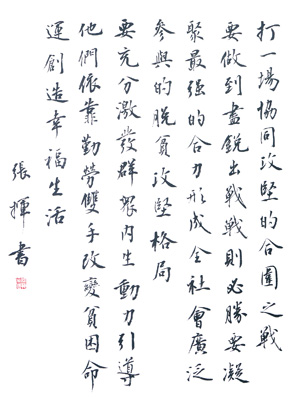 打一場協同攻堅的合圍之戰
要做到盡銳出戰戰則必勝要凝
聚最强的合力形成全社會廣泛
參與的脱貧攻堅格局
要充分激發群衆内生動力引導
他們依靠勤勞雙手改變貧困命
運創造幸福生活
張輝書